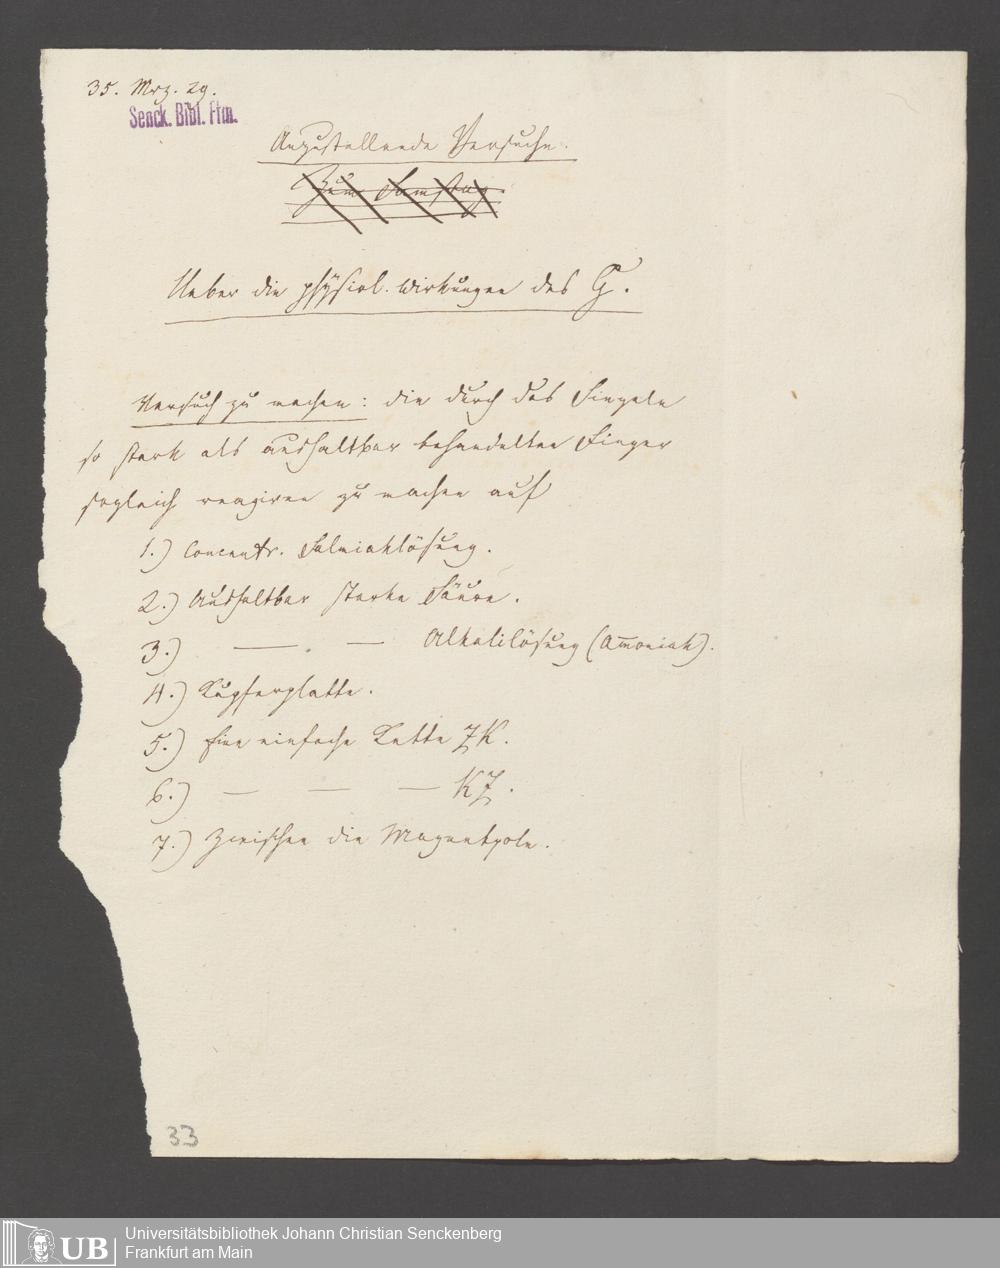 35. Mrz. 29.
Senck. Bibl. Ffm.
Anzustellende Versuche.
Zum Samstag.
Ueber die physiol. Wirkungen des G.
Versuch zu machen: die durch das
so stark als aushaltbar behandelten Finger
sogleich reagiren zu machen auf
1.) Concentr. Salmiaklösung.
2.) Aushaltbar starke Säure.
3.) — . — Alkalilösung (Amoniak).
4.) Kupferplatte.
5.) Eine einfache Kette ZK.
6.) — — — KZ.
7.) Zwischen die Magnetpole.
33
UB
Universitätsbibliothek Johann Christian Senckenberg
Frankfurt am Main